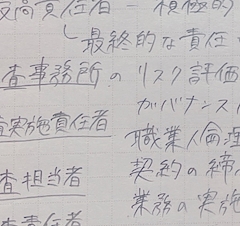 最高責任者 — 積極的
最終的な責任
査事務所の リスク評価
ガバナンス
査実施責任者
職業人倫理
契約の締
査担当者
業務の実施
査責任者